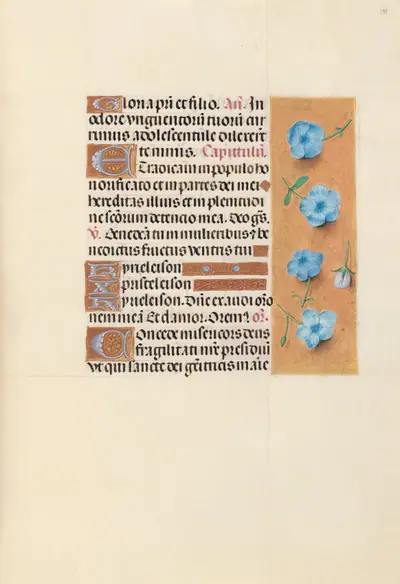 Gloria pr̄i et filio. Añ. In
odore vnguentorū tuorū cur
rimus adolescentule dilexerūt
te nimis. Capittulū.
Et radicaui in populo ho
norificato et in partes dei mei
hereditas illius et in plenitudi
ne sc̄orum detencio mea. Deo gr̄s.
V. Benedicta tu in mulieribus et be
nedictus fructus ventris tui
Kyrieleison
Xp̄isteleison
Kyrieleison. Dn̄e exaudi or̄o
nem meā. Et clamor. Orem⁹ or̄o.
Concede misericors deus
fragilitati nr̄e presidiū
vt qui sancte dei gēitricis marie